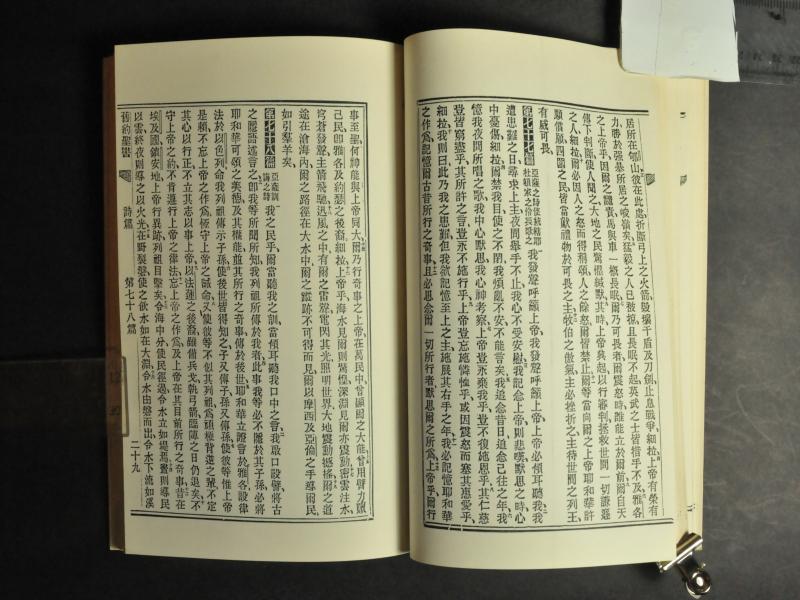 居所在郇山彼在此處折斷弓上之火箭毀壞干盾及刀劍止息戰爭細拉上帝有榮有
力勝於强暴所居之峻嶺矣猛殺之人已被掠且長眠不起英武之士皆措手不及雅各
之上帝乎因爾之譴責馬與車一概長眠爾乃可畏者爾震怒時誰能立於爾前爾自天
傳下判斷人聞之大地之民驚懼緘默其時上帝興起以行審判拯救世間一切謙遜
之人細拉爾必因人之怒而得稱頌人之餘怒爾皆禁止爾等當向爾之上帝耶和華許
願償願四圍之民皆當獻禮物於可畏之主牧伯之傲氣主必挫折之主待世間之列王
有威可畏
第七十七篇 亞薩之詩使耶杜頓之伶長歌之 我發聲呼籲上帝我發聲呼籲上帝必傾耳聽我我
遭患難之日尋求上主夜間舉手不止我心不受安慰我記念上帝則悲嘆默思之時心
中憂傷細拉爾禁我目使之不閉我煩亂不安不能言矣我追念昔日追念已往之年我
憶我夜間所唱之歌我心中默思我心神考察上帝豈永棄我乎豈不復施恩乎其仁慈
豈皆窮盡乎其所許之言豈永不施行乎上帝豈忘施憐恤乎或因震怒而塞其恩愛乎
細拉我則曰此乃我之患難但我欲記憶至上之主施展其右手之年我必記憶耶和華
之作爲記憶爾古昔所行之奇事且必思念爾一切所行者默思爾之所爲上帝乎爾行
事至聖何神能與上帝同大爾乃行奇事之上帝在萬民中曾顯爾之大能曾用臂力贖
己民卽雅各及約瑟之後裔細拉上帝乎海水見爾則驚惶深淵見爾亦震動密雲注水
穹蒼發聲主箭飛馳迅風之中有爾之雷聲電閃其光照明世界大地震動撼搖爾之道
途在滄海內爾之路徑在大水中爾之蹤跡不可得而見爾以摩西及亞倫之手導爾民
如引羣羊矣
第七十八篇 亞薩訓誨之詩 我之民乎爾當聽我之訓當傾耳聽我口中之言我啟口設譬將古
之隱語述言之卽我等所聞所知我列祖所傳於我者此事我等必不隱於其子孫必將
耶和華可頌之美德及其權能並其所行之奇事傳於後世耶和華立證言於雅各設律
法於以色列命我列祖傳示子孫使後世皆得知之子又傳子孫又傳孫使彼等惟上帝
是賴不忘上帝之作爲恆守上帝之誡命又使彼等不似其列祖爲頑梗背逆之輩不定
其心以行正不立其志以事上帝以法蓮之後裔雖備兵戈執弓箭臨陣之日仍退矣不
守上帝之約不肯遵行上帝之律法忘上帝之作爲及上帝在其目前所行之奇事昔在
埃及國鎖安地上帝行異跡列祖目擊矣令海中分使民徑過令水立如壘焉晝則導之
以雲終夜則導之以火光在野裂磐使之飲水如在大淵令水由磐而出令水下流如溪
舊約聖書 詩篇 第七十八篇 二十九